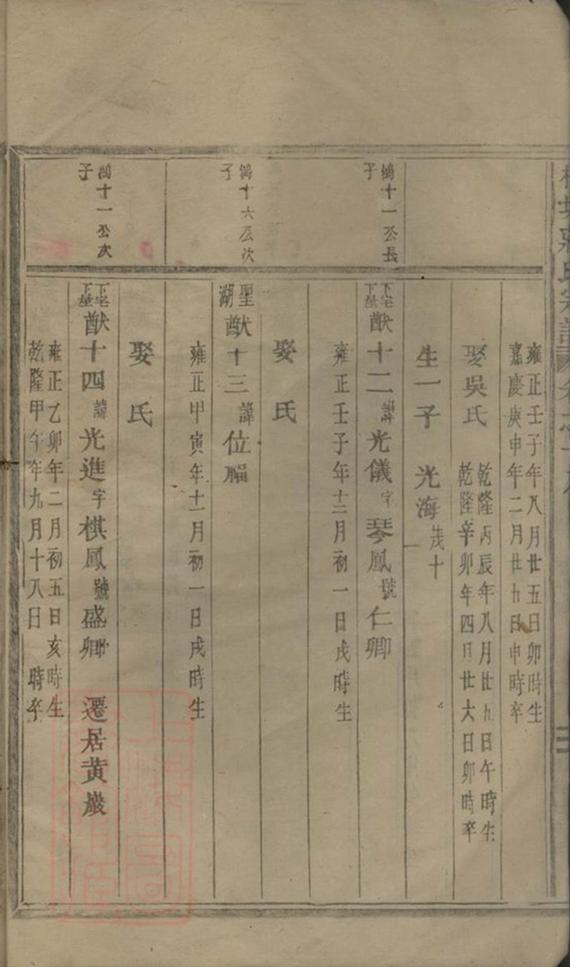 雍正壬子年八月廿五日卯時生
嘉慶庚申年二月廿九日申時卒
娶吳氏
乾隆丙辰年八月廿九日午時生
乾隆辛卯年四月廿六日卯時卒
生一子 光海 茂十一
鴻十一公長
子
猷十二 諱光儀 字琴鳳 號仁卿
雍正壬子年十二月初一日戌時生
娶 氏
鴻十六公次
子
聖湖
猷十三 諱位福
雍正甲寅年十一月初一日戌時生
娶 氏
鴻十一公次
子
猷十四 諱光進 字棋鳳 號盛卿 遷居黃巖
雍正乙卯年二月初五日亥時生
乾隆甲午年九月十八日 時卒